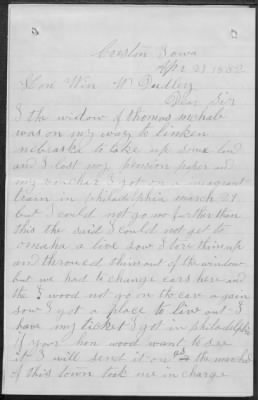 Creston Iowa
Apr 23 1882
Hon Wm W Dudley
Dear Sir
I the widow of thomas mchale
was on my way to linken
nebraska to take up some land
and I lost my pension paper and
my voucher I got on a imagrant
train in philadelphia march 29
but I could not go no further than
this the said I could not get to
omaha a live sow I tore them up
and throwed them out of the window
but we had to change cars here and
the wood not go on the care a gain
sow I got a place to live out I
have my ticket I got in philadelphia
if your hon wood want to see
it I will send it on as the marshal
of this town took me in charge